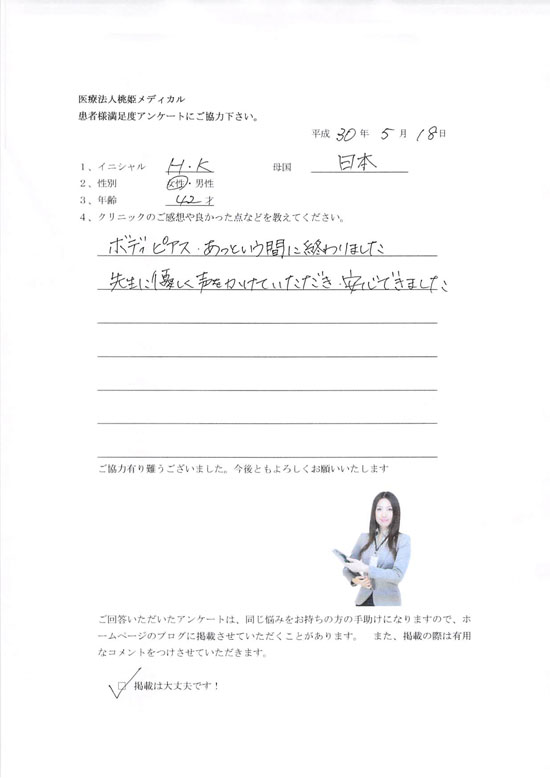 医療法人桃姫メディカル
患者様満足度アンケートにご協力下さい。
平成 30 年 5 月 18 日
1、イニシャル H・K 母国 日本
2、性別 女性・男性
3、年齢 42 才
4、クリニックのご感想や良かった点などを教えてください。
ボディピアス・あっという間に終わりました
先生に優しく声をかけていただき・安心できました
ご協力有り難うございました。今後ともよろしくお願いいたします
ご回答いただいたアンケートは、同じ悩みをお持ちの方の手助けになりますので、ホ
ームページのブログに掲載させていただくことがあります。 また、掲載の際は有用
なコメントをつけさせていただきます。
☑ 掲載は大丈夫です！